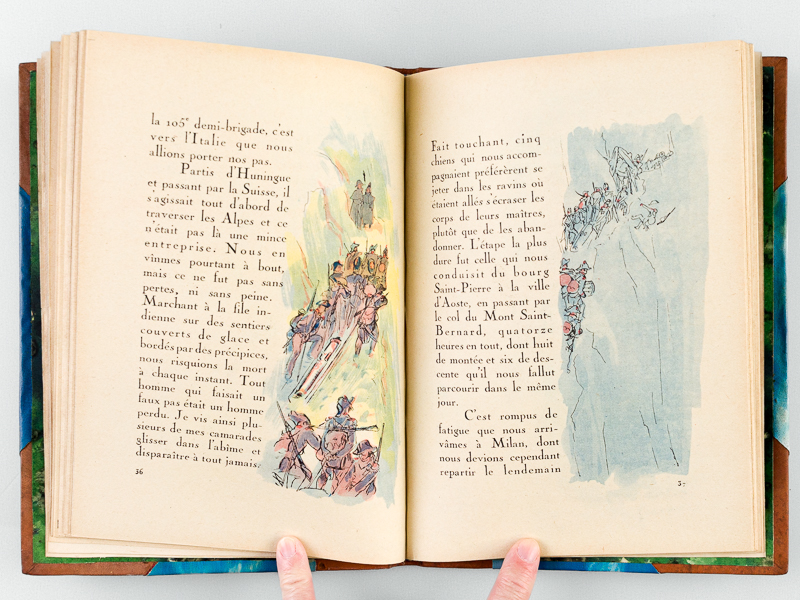 la 105e demi-brigade, c'est
vers l'Italie que nous
allions porter nos pas.
Partis d'Huningue
et passant par la Suisse, il
s'agissait tout d'abord de
traverser les Alpes et ce
n'était pas là une mince
entreprise. Nous en
vînmes pourtant à bout,
mais ce ne fut pas sans
pertes, ni sans peine.
Marchant à la file in-
dienne sur des sentiers
couverts de glace et
bordés par des précipices,
nous risquions la mort
à chaque instant. Tout
homme qui faisait un
faux pas était un homme
perdu. Je vis ainsi plu-
sieurs de mes camarades
glisser dans l'abîme et
disparaître à tout jamais.
56
Fait touchant, cinq
chiens qui nous accom-
pagnaient préférèrent se
jeter dans les ravins où
étaient allés s'écraser les
corps de leurs maîtres,
plutôt que de les aban-
donner. L'étape la plus
dure fut celle qui nous
conduisit du bourg
Saint-Pierre à la ville
d'Aoste, en passant par
le col du Mont Saint-
Bernard, quatorze
heures en tout, dont huit
de montée et six de des-
cente qu'il nous fallut
parcourir dans le même
jour.
C'est rompus de
fatigue que nous arri-
vâmes à Milan, dont
nous devions cependant
repartir le lendemain
57